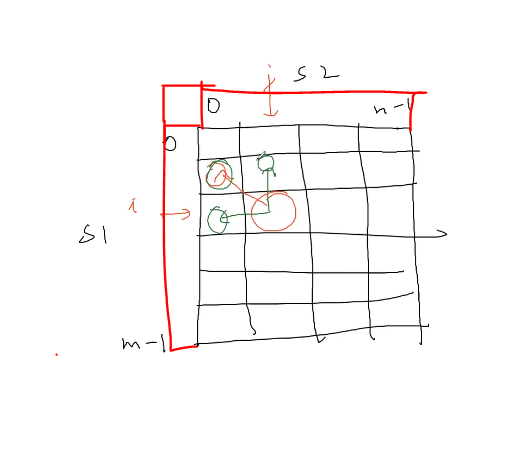 j S2
0 n-1
0
i
S1
m-1